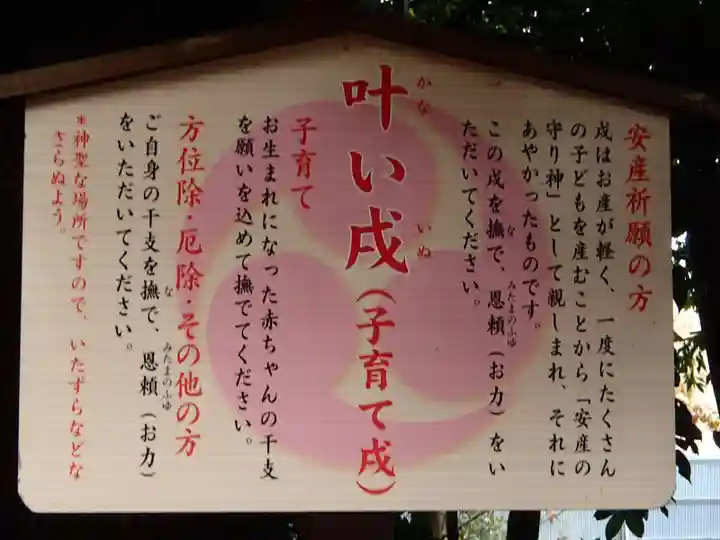 安産祈願の方
戌はお産が軽く、一度にたくさん
の子どもを産むことから「安産の
守り神」として親しまれ、それに
あやかったものです。
この戌を撫で、恩頼（お力）をい
な
みたまのふゆ
ただいてください。
叶い戌（子育て戌）
かな
いぬ
子育て
お生まれになった赤ちゃんの干支
を願いを込めて撫でてください。
方位除・厄除・その他の方
ご自身の干支を撫で、恩頼（お力）
な
みたまのふゆ
をいただいてください。
＊神聖な場所ですので、いたずらなどな
さらぬよう。